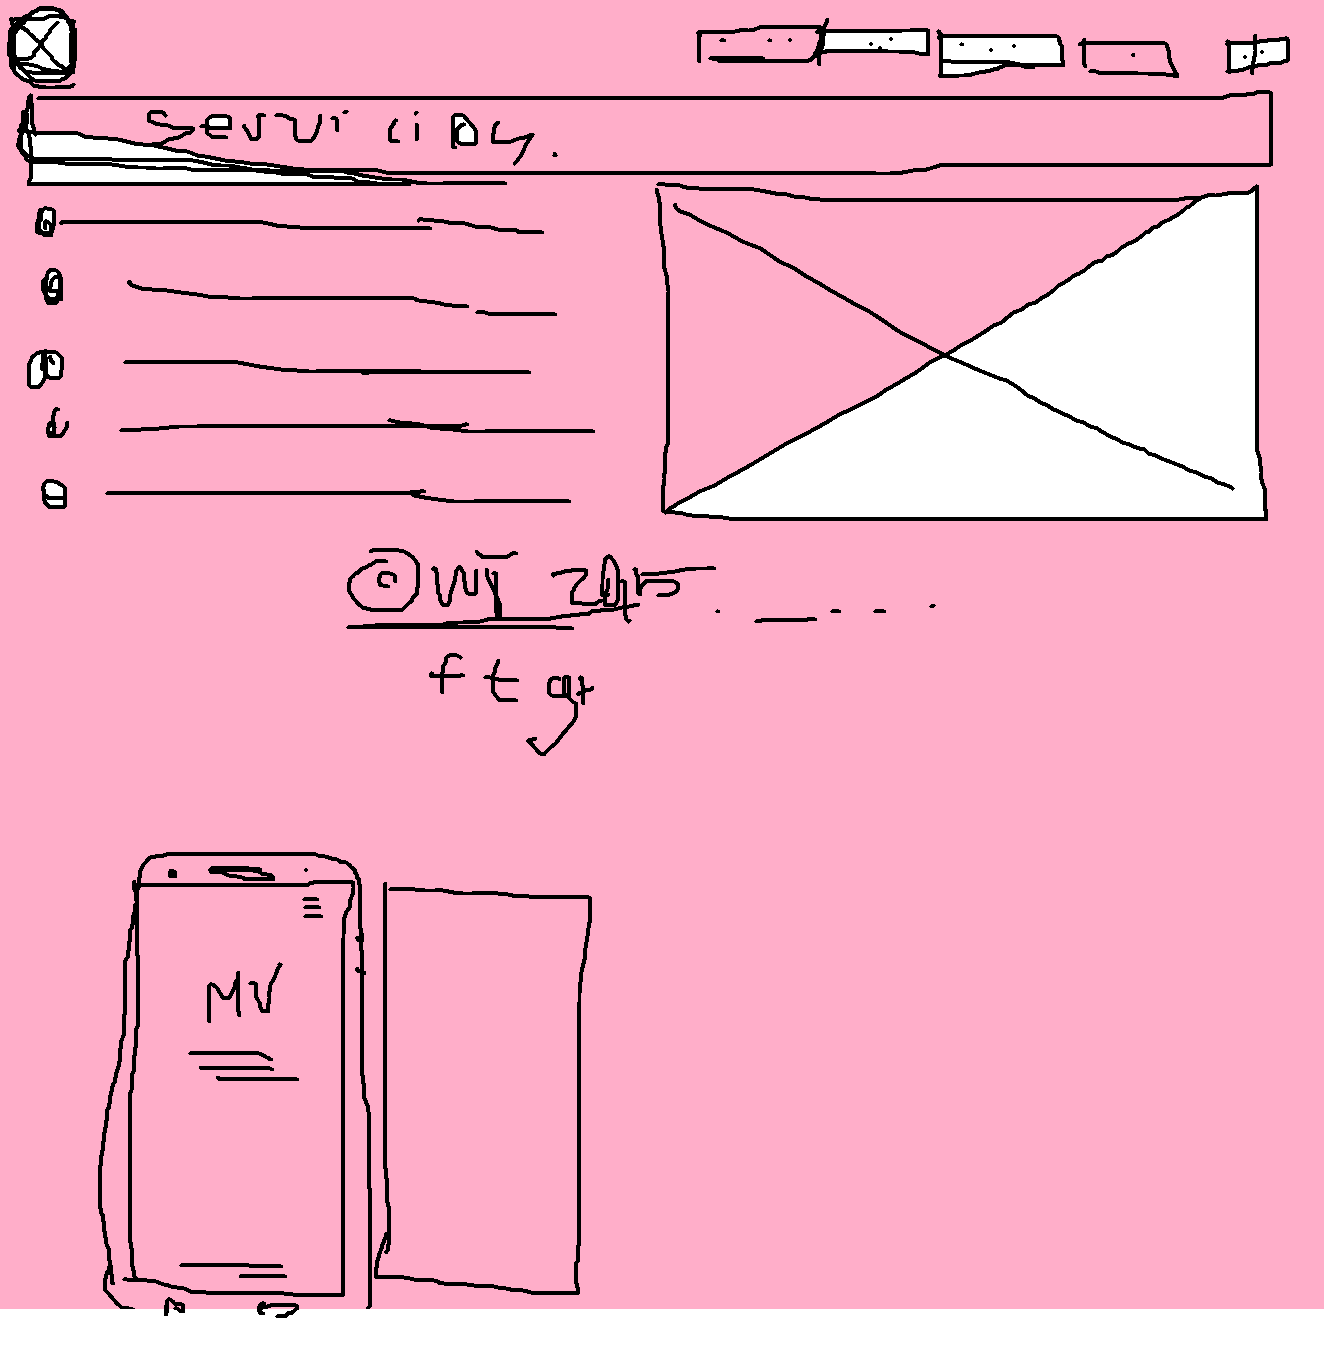 Servicios.
© WT 2015
f t g+
MV